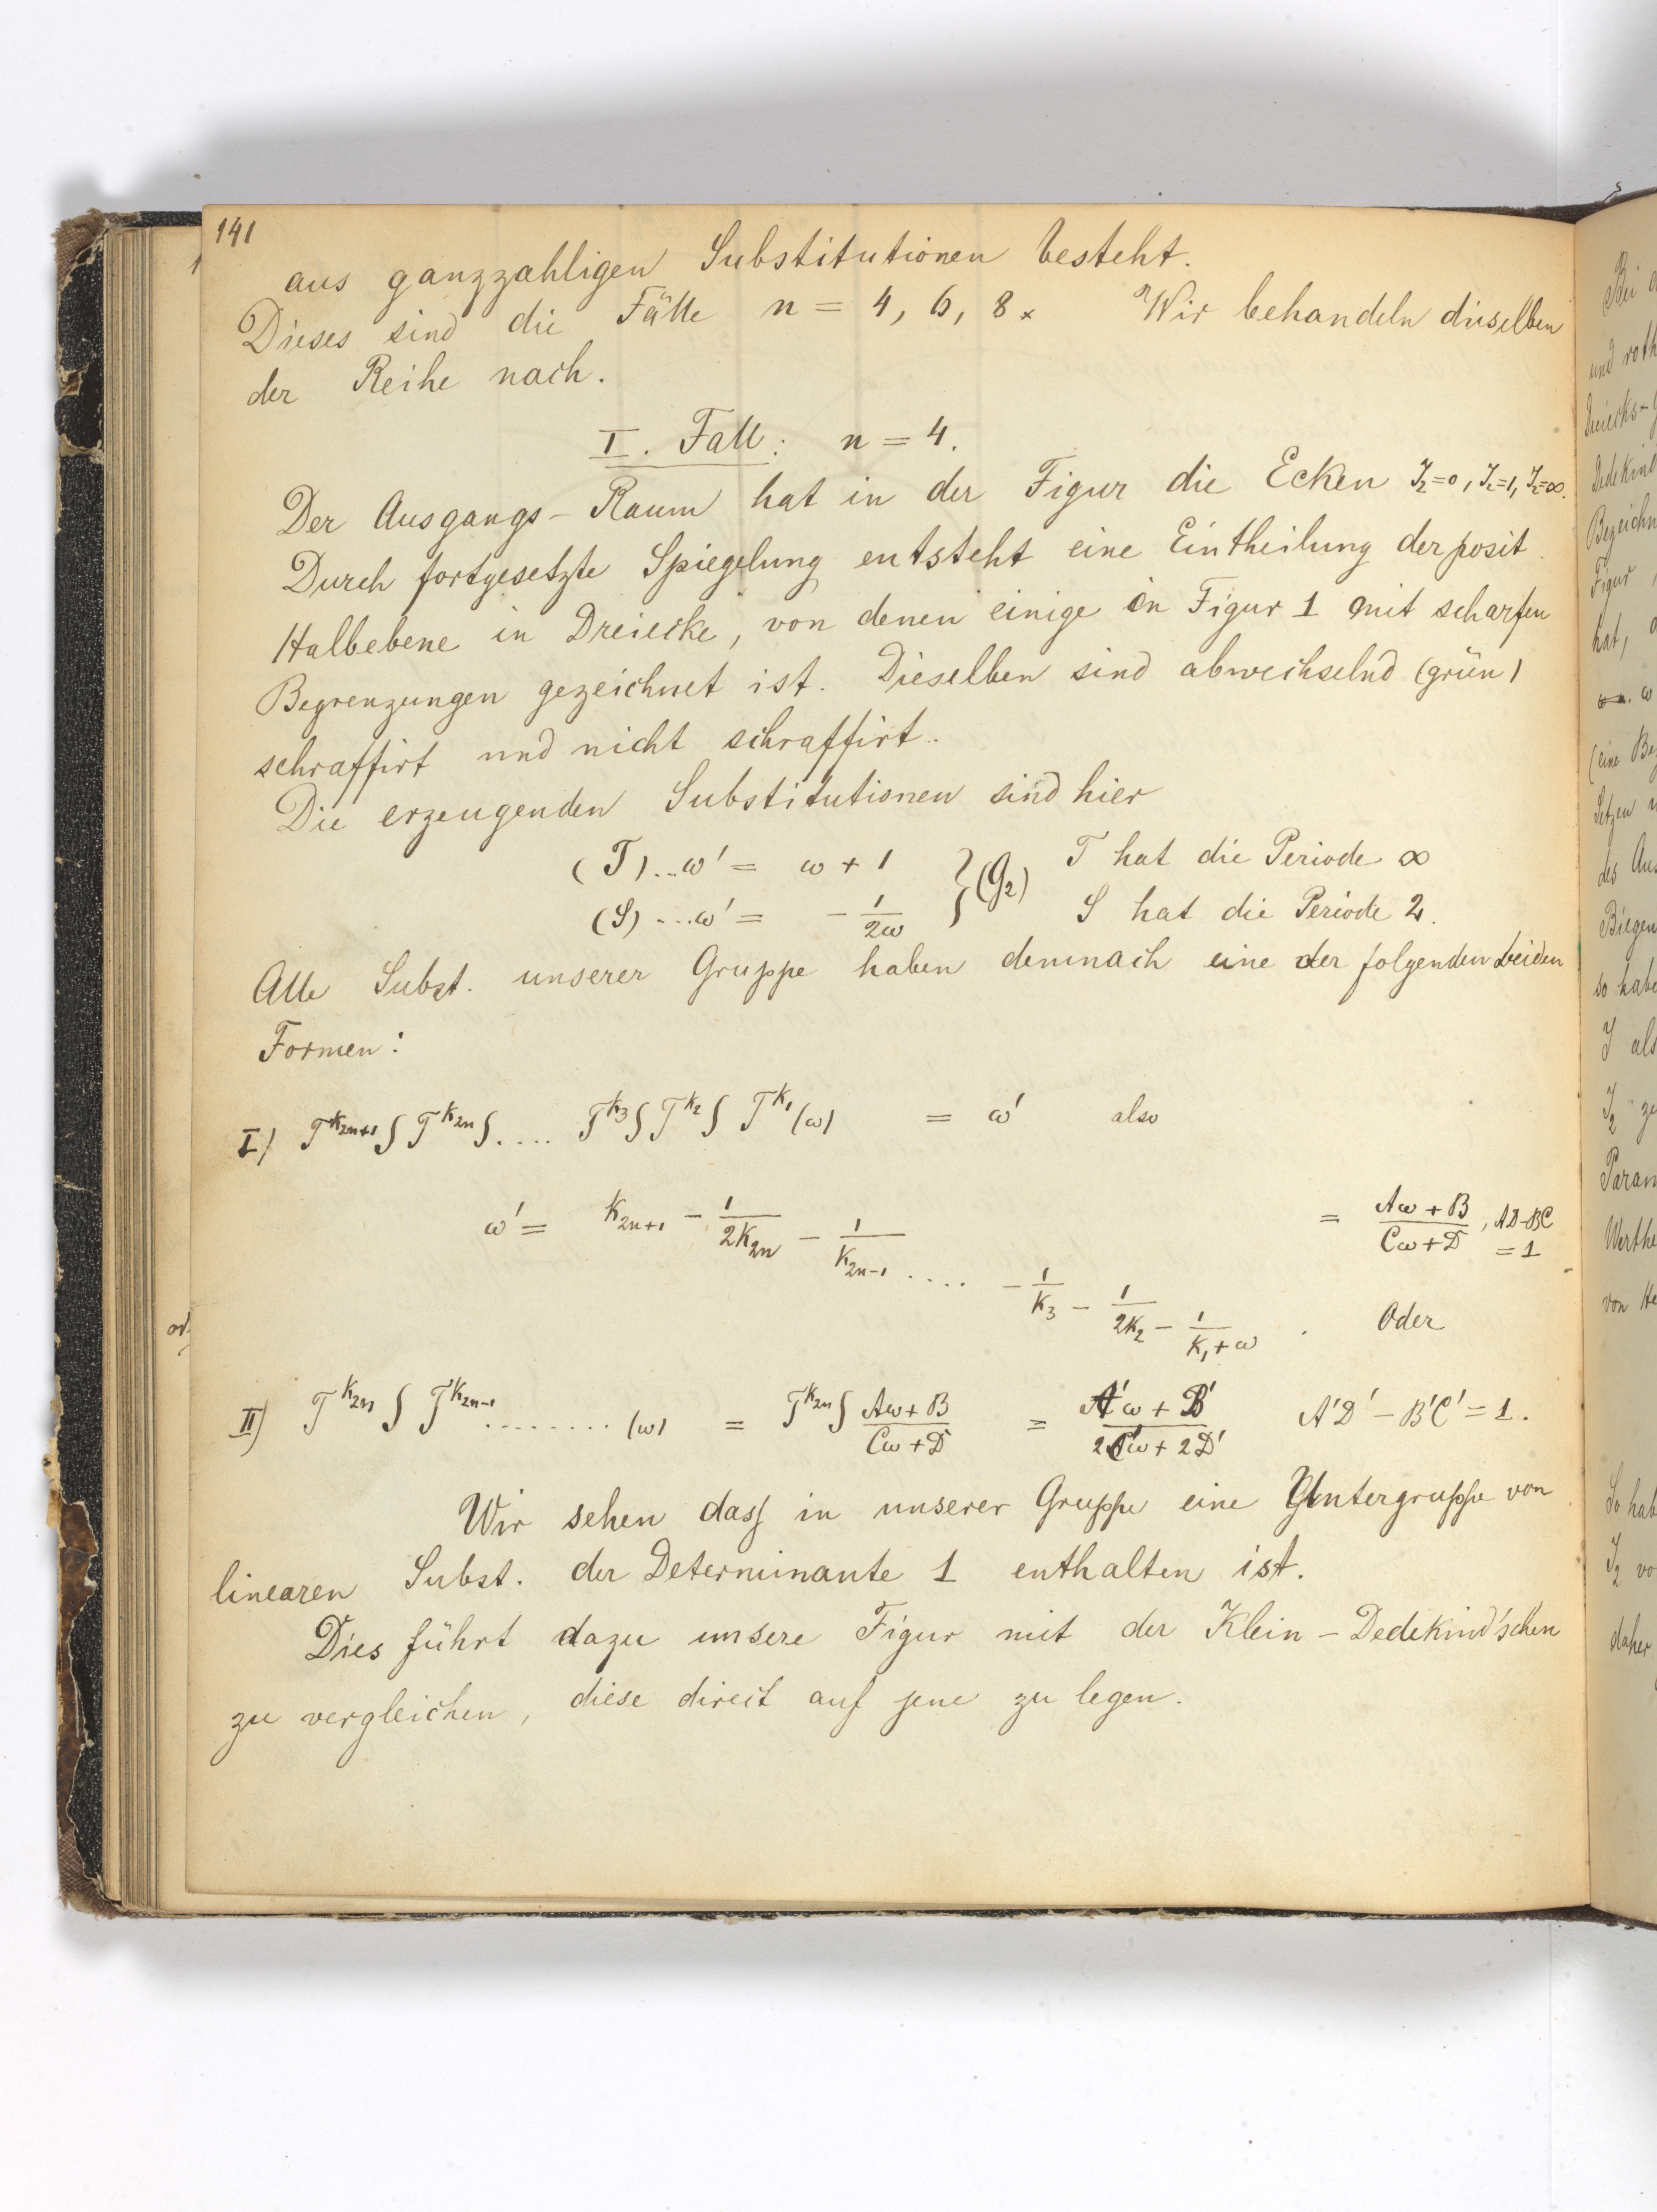 141
aus ganzzahligen Substitutionen besteht.
Dieses sind die Fälle n = 4, 6, 8. Wir behandeln dieselben
der Reihe nach.
I. Fall: n = 4.
Der Ausgangs-Raum hat in der Figur die Ecken J₂=0, J₂=1, J₂=∞.
Durch fortgesetzte Spiegelung entsteht eine Eintheilung der posit.
Halbebene in Dreiecke, von denen einige in Figur 1 mit scharfen
Begrenzungen gezeichnet ist. Dieselben sind abwechselnd (grün)
schraffirt und nicht schraffirt.
Die erzeugenden Substitutionen sind hier
(T)...ω' = ω + 1 } (G₂) T hat die Periode ∞
(S)...ω' = - 1/2ω S hat die Periode 2.
Alle Subst. unserer Gruppe haben demnach eine der folgenden beiden
Formen:
I) T^k₂ₙ₊₁ S T^k₂ₙ S .... T^k₃ S T^k₂ S T^k₁ (ω) = ω' also
ω' = k₂ₙ₊₁ - 1/2k₂ₙ - 1/k₂ₙ₋₁ .... - 1/k₃ - 1/2k₂ - 1/k₁+ω = Aω + B/Cω + D, AD-BC = 1
. Oder
II) T^k₂ₙ S T^k₂ₙ₋₁ ........ (ω) = T^k₂ₙ S Aω + B/Cω + D = A'ω + B'/2C'ω + 2D' A'D' - B'C' = 1.
Wir sehen dass in unserer Gruppe eine Untergruppe von
linearen Subst. der Determinante 1 enthalten ist.
Dies führt dazu unsere Figur mit der Klein-Dedekind'schen
zu vergleichen, diese direct auf jene zu legen.